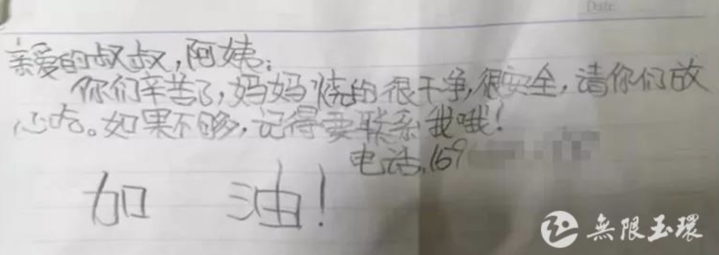 Date
亲爱的叔叔，阿姨：
你们辛苦了，妈妈烧的很干净，很安全，请你们放
心吃。如果不够，记得要联系我哦！
电话，159
加 油！
無限玉環